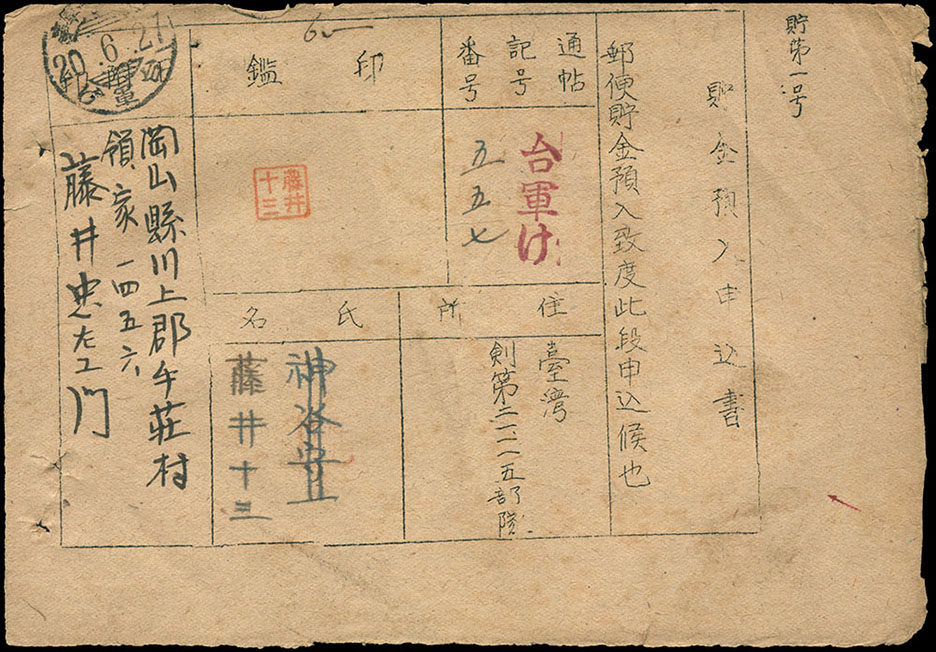 貯第一号
貯金預入申込書
郵便貯金預入致度此段申込候也
通帖
記号
番号
台軍け
五五七
印鑑
藤井
十三
住所
臺湾
剣第二二一五部隊
氏名
神谷安
藤井十三
20.6.27
岡山縣川上郡手荘村
領家一四五六
藤井忠左エ門